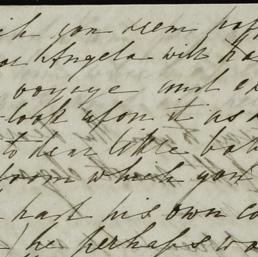 you seem
Angela will ha
voyage and ex
look upon it as a
to hear little bab
room which you
hast his own co
he perhaps wa